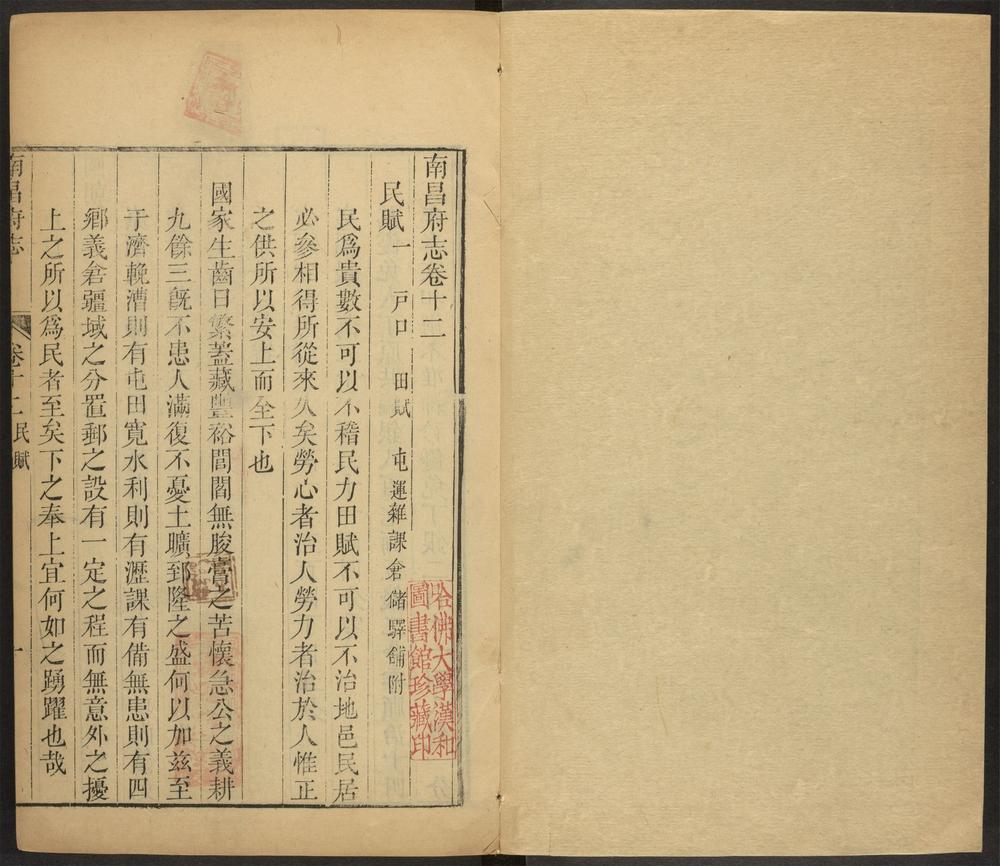 南昌府志卷十二
民賦一 戸口 田賦 屯運雜課倉儲驛舖附
民爲貴數不可以不稽民力田賦不可以不治地邑民居
必參相得所從來久矣勞心者治人勞力者治於人惟正
之供所以安上而全下也
國家生齒日繁蓋藏豐裕閭閻無朘膏之苦懷急公之義耕
九餘三旣不患人滿復不憂土曠郅隆之盛何以加兹至
于濟輓漕則有屯田寬水利則有瀝課有備無患則有四
鄉義倉疆域之分置郵之設有一定之程而無意外之擾
上之所以爲民者至矣下之奉上宜何如之踴躍也哉
南昌府志 卷十二 民賦 一
哈佛大學漢和
圖書館珍藏印